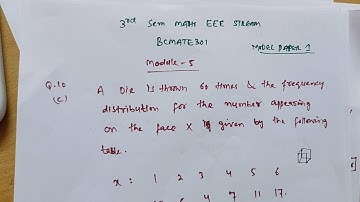 3rd Sem MATHS EEE STREAM
BCMATE301
MODEL PAPER 1
Module - 5
Q.10 A Die is thrown 60 times & the frequency
(c) distribution for the number appearing
on the face X is given by the following
table.
x : 1 2 3 4 5 6
4 7 11 17.